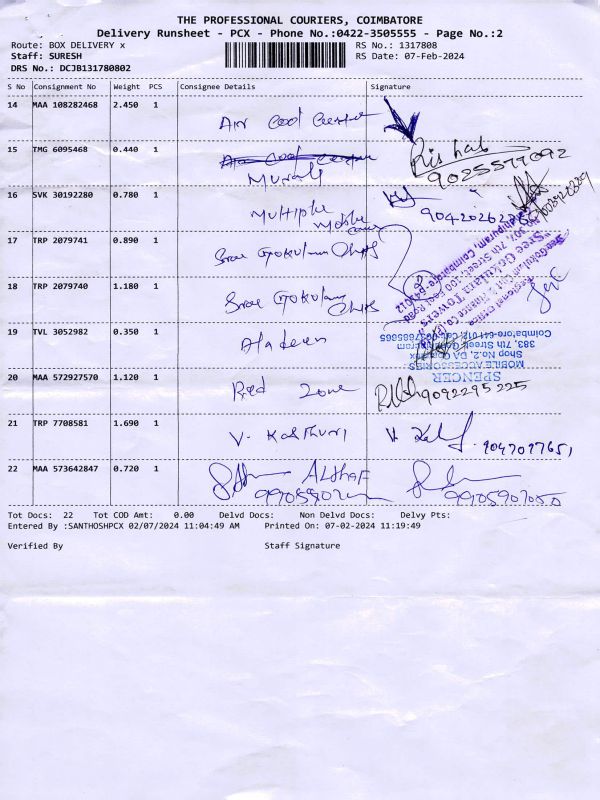 THE PROFESSIONAL COURIERS, COIMBATORE
Delivery Runsheet - PCX - Phone No.:0422-3505555 - Page No.:2
Route: BOX DELIVERY x
RS No.: 1317808
Staff: SURESH
RS Date: 07-Feb-2024
DRS No.: DCJB131780802
S No Consignment No Weight PCS Consignee Details Signature
14 MAA 108282468 2.450 1
Air Cool
15 TMG 6095468 0.440 1
Murali
Rishab
9025577092
16 SVK 30192280 0.780 1
Multiple Mobile
17 TRP 2079741 0.890 1
Sree Gokulam Chits
18 TRP 2079740 1.180 1
Sree Gokulam Chits
Sree Gokulam Towers
19 TVL 3052982 0.350 1
Aladeen
SPENCER
MOBILE ACCESSORIES
383, 7th Street,
20 MAA 572927570 1.120 1
Red Zone
9092295225
21 TRP 7708581 1.690 1
V. Kasthuri
9047077651
22 MAA 573642847 0.720 1
Althaf
Tot Docs: 22 Tot COD Amt: 0.00 Delvd Docs: Non Delvd Docs: Delvy Pts:
Entered By :SANTHOSHPCX 02/07/2024 11:04:49 AM Printed On: 07-02-2024 11:19:49
Verified By Staff Signature